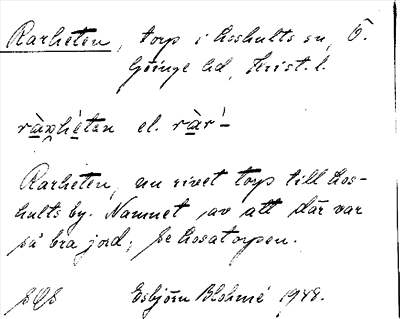 Rarheten, torp i Osshults sn, Ö.
Göinge hd, Krist. l.
ràrhéten el. ràr´-
Rarheten, nu rivet torp till Hos-
hults by. Namnet av att där var
så bra jord; se Hosatorpen.
Esbjörn Blohmé 1948.